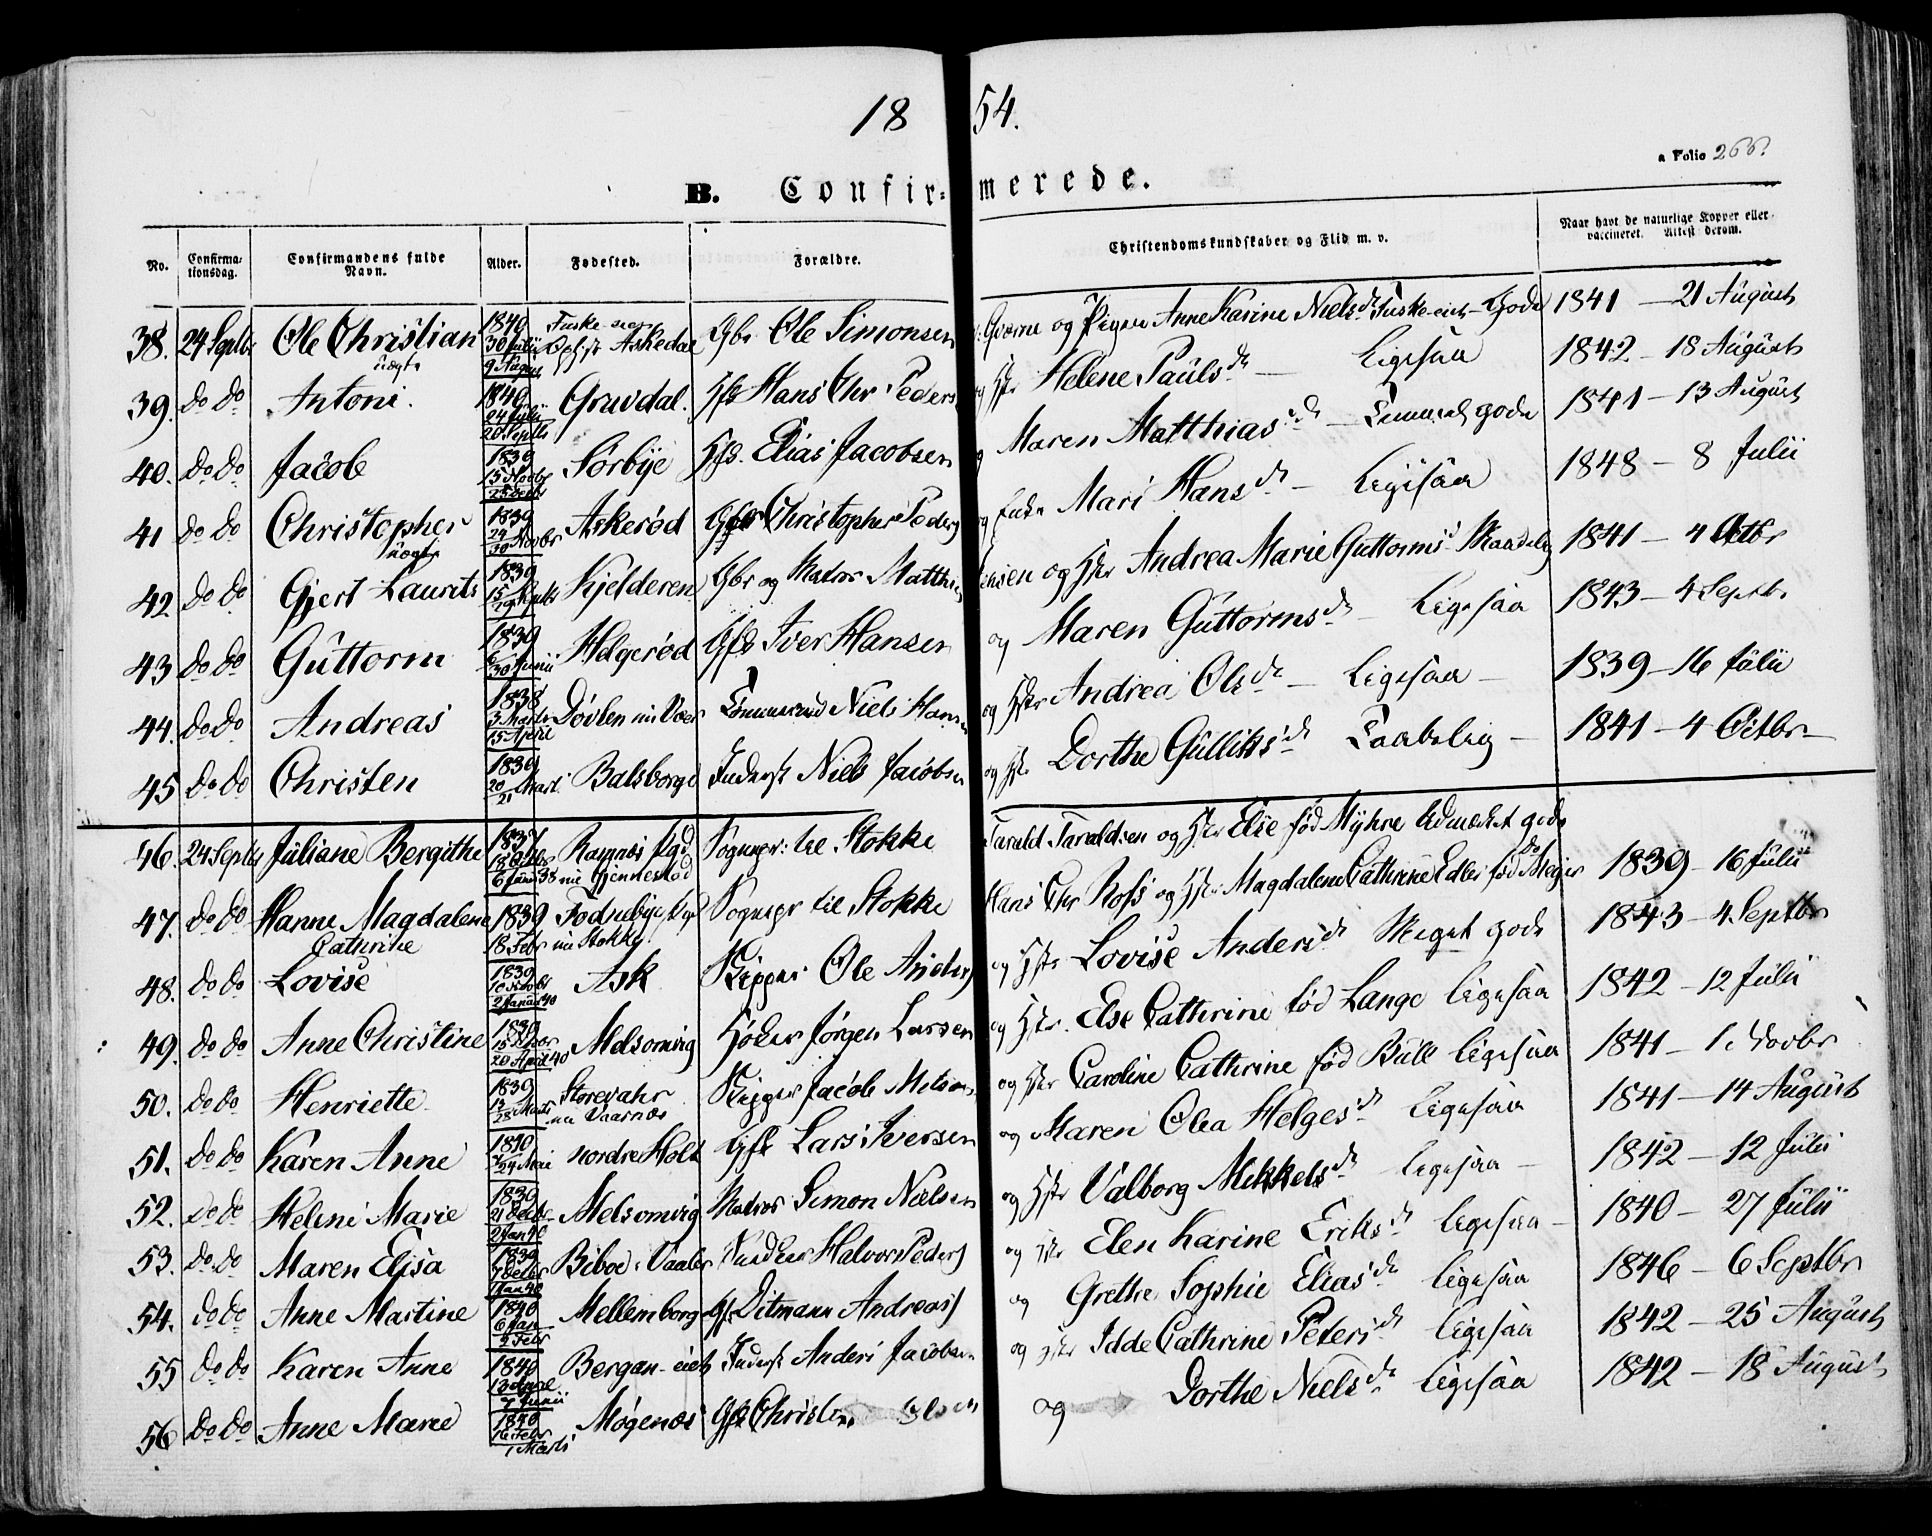 18 54.
a Folio 266.
B. Confir= merede.
No. Confirma-tionsdag. Confirmandens fulde Navn. Alder. Fødested. Forældre. Christendomskundskaber og Flid m. v. Naar havt de naturlige Kopper eller vaccineret. Attest derom.
38. 24 Septbr Ole Christian uægte 1840 30 Julii 9 August Askedal Gbr Ole Simonsen og Pigen Anne Karine Nielsd. Fuske-eie - Gode 1841 - 21 August
39. Do Do Antoni. 1840 24 Julii 20 Septbr Gruvdal. Hans Chr Peders og Helene Paulsd. - Ligesaa 1842 - 18 August
40. Do Do Jacob 1839 15 Novbr Sørbye Elias Jacobsen Maren Matthiasd. - gode 1841 - 13 August
41 Do Do Christopher uægte 1839 29 30 Novbr Askerød Christopher Peders og Enke Mari Hansd. - Ligesaa 1848 - 8 Julii
42 Do Do Gjert Laurits 1839 15 Septbr Kjelderen Gbr og Matros Matthi asen og Andrea Marie Guttormsd. Maadelig 1841 - 4 Octbr
43 Do Do Guttorm 1839 6 30 Junii Helgerød Iver Hansen og Maren Guttormsd. - Ligesaa 1843 - 4 Septbr
44. Do Do Andreas 1838 3 Marts 15 April Døvlen Niels Hansen og Andrea Olsd. - Ligesaa - 1839 - 16 Julii
45 Do Do Christen 1839 20 21 Marts Balsborge Inderst Niels Jacobsen og Dorthe Gulliksd. Taabelig - 1841 - 4 Octbr
46. 24 Septbr Juliane Bergithe 1837 Ramnes Pgd nu Gjennestad Sognepr: til Stokke Tarald Taraldsen og Else fød Myhre Udmærket gode 1839 - 16 Julii
47. Do Do Hanne Magdalene Cathrine 1839 18 Febr nu Stokke Sognepr til Stokke Hans Chr Ross og Magdalene Cathrine Edle fød Meyer Do 1843 - 4 Septbr
48. Do Do Lovise 1839 2 Januar 40 Ask Skipper Ole Anders og Lovise Andersd. Meget gode 1842 - 12 Julii
49. Do Do Anne Christine 1839 20 April 40 Melsomvig Høker Jørgen Larsen og Else Cathrine fød Lange Ligesaa 1841 - 1 Novbr
50. Do Do Henriette 1839 Storevahr Skipper Jacob Melsom og Caroline Cathrine fød Bull Ligesaa 1841 - 14 August
51. Do Do Karen Anne 1840 24 Mai nordre Holt Lars Iversen og Maren Olea Helgesd. Ligesaa 1842 - 12 Julii
52. Do Do Helene Marie 1839 Melsomvig Matros Simon Nielsen og Valborg Mikkelsd. Ligesaa - 1840 - 27 Julii
53. Do Do Maren Elisa 1839 Biboe i Vaaler Halvor Peders og Elen Karine Eriksd. Ligesaa - 1846 - 6 Septbr
54. Do Do Anne Martine 1840 6 Jan 2 Febr Mellemborge Ditmann Andreas og Grethe Sophie Eliasd. Ligesaa 1842 - 25 August
55 Do Do Karen Anne 1840 Bergan-eie Inderst Anders Jacobsen og Idde Cathrine Petersd. Ligesaa 1842 - 18 August
56 Do Do Anne Marie 1840 16 Febr 1 Marts Møgenæs Christen Olsen og Dorthe Nielsd. Ligesaa